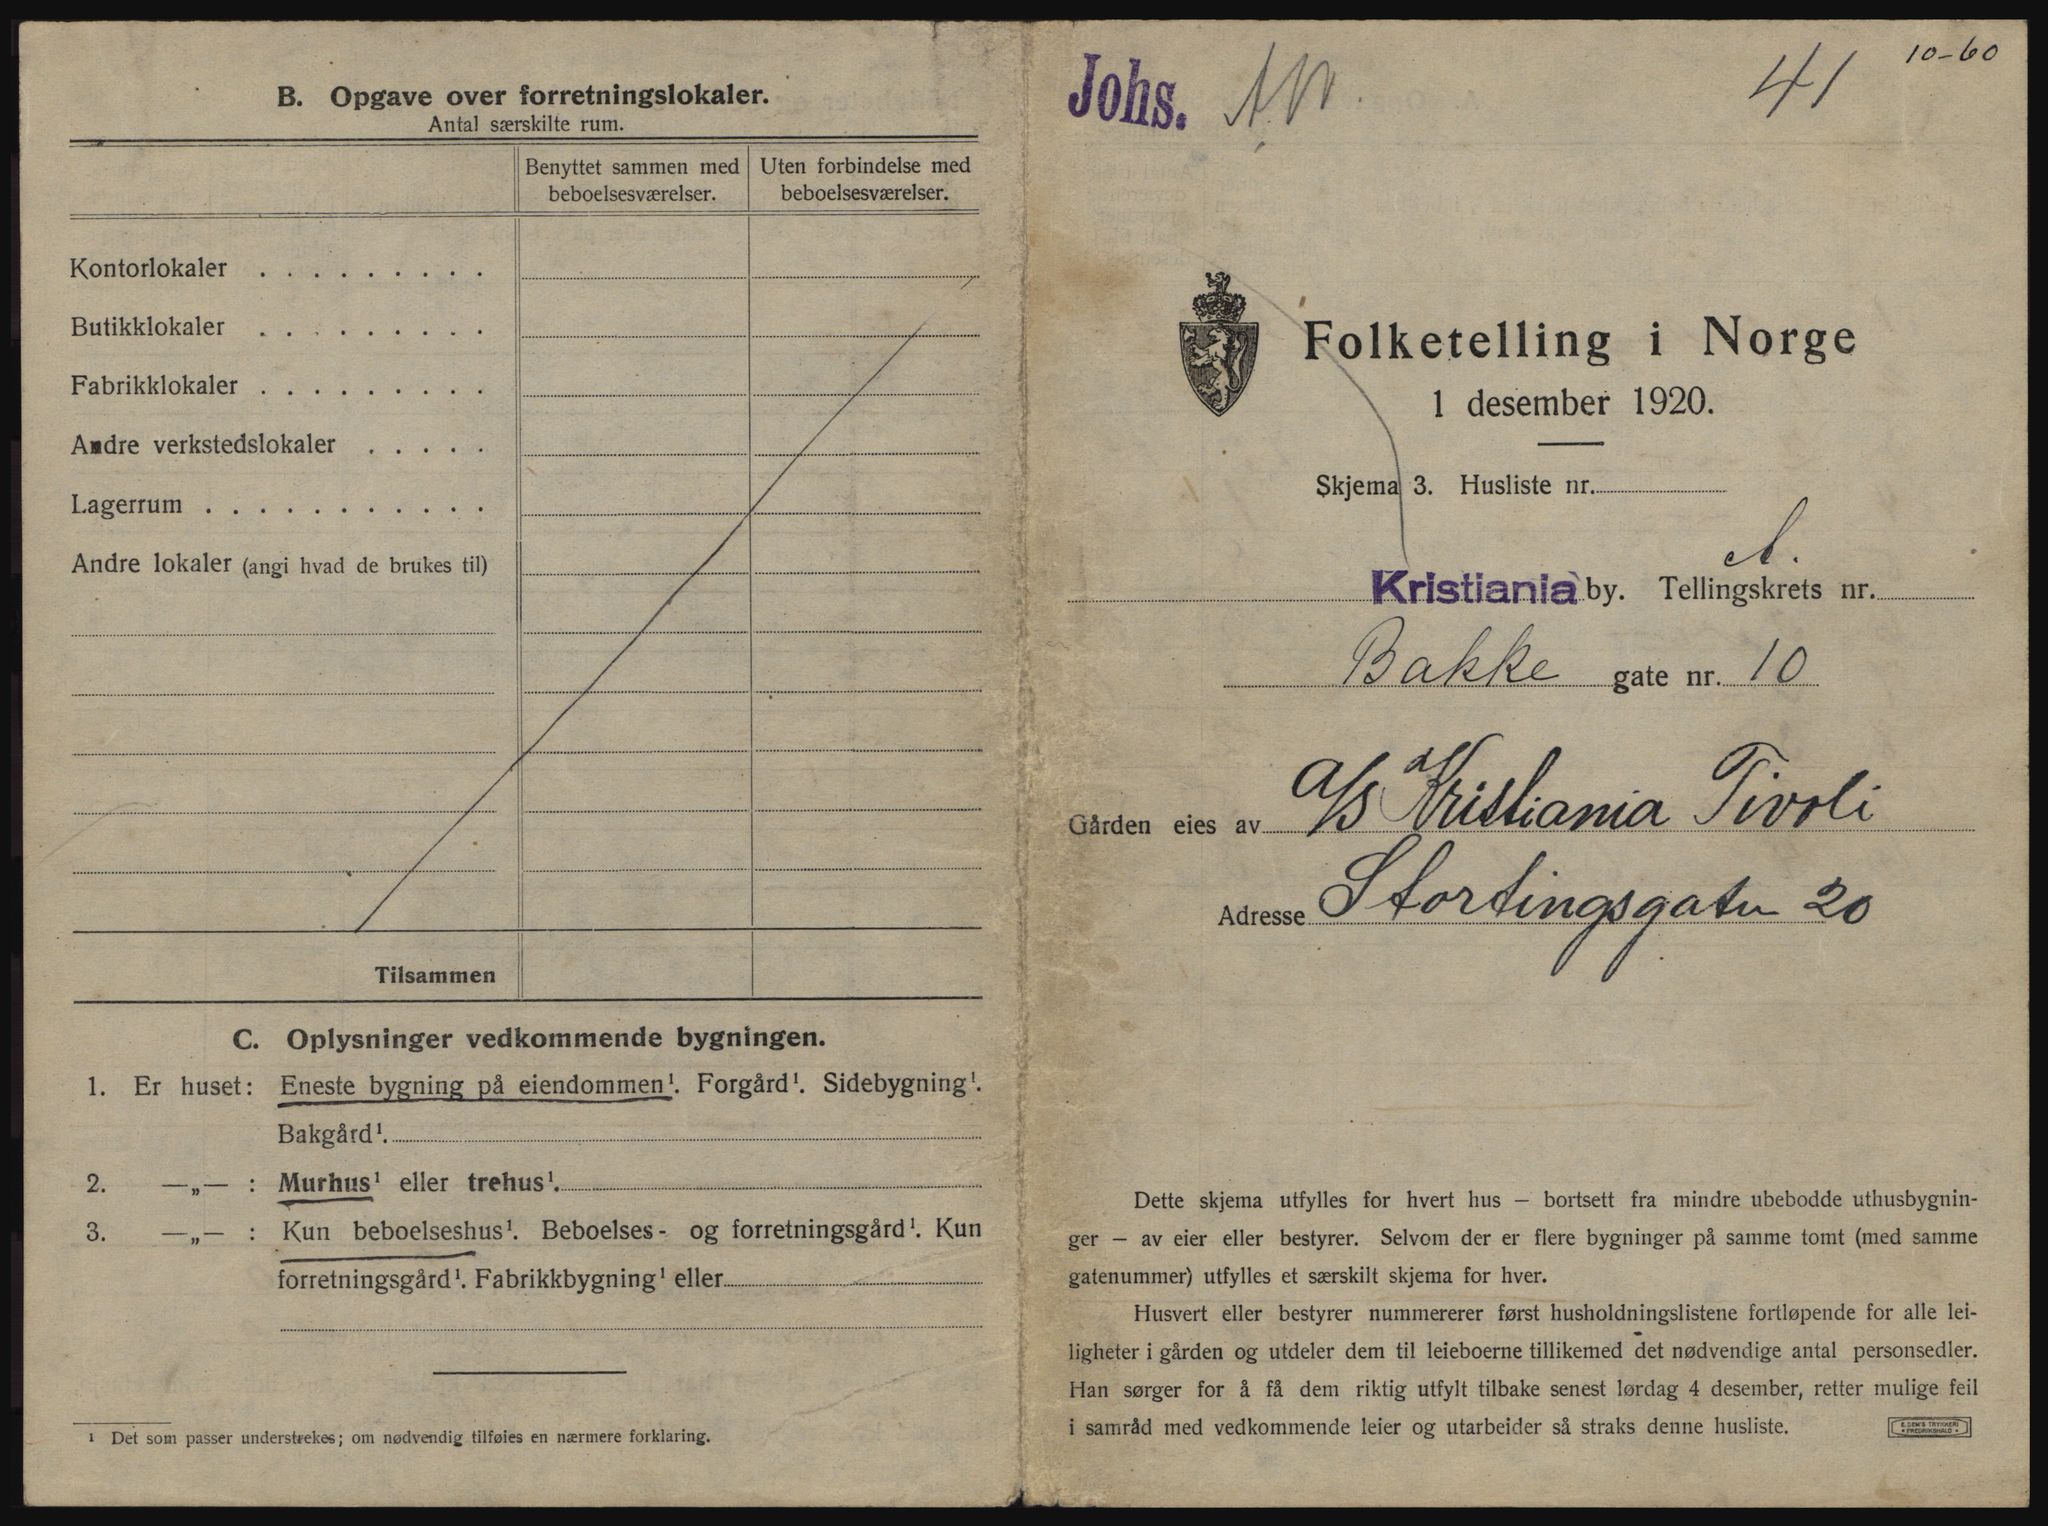 B. Opgave over forretningslokaler.
Antal særskilte rum.
Benyttet sammen med beboelsesværelser.
Uten forbindelse med beboelsesværelser.
Kontorlokaler . . . . . . . . .
Butikklokaler . . . . . . . . .
Fabrikklokaler . . . . . . . . .
Andre verkstedslokaler . . . . .
Lagerrum . . . . . . . . . . .
Andre lokaler (angi hvad de brukes til)
Tilsammen
C. Oplysninger vedkommende bygningen.
1. Er huset: Eneste bygning på eiendommen¹. Forgård¹. Sidebygning¹.
Bakgård¹.
2. —„— : Murhus¹ eller trehus¹.
3. —„— : Kun beboelseshus¹. Beboelses- og forretningsgård¹. Kun
forretningsgård¹. Fabrikkbygning¹ eller
¹ Det som passer understrekes; om nødvendig tilføies en nærmere forklaring.
Johs.
41
10-60
Folketelling i Norge
1 desember 1920.
Skjema 3. Husliste nr.
A.
Kristiania by. Tellingskrets nr.
Bakke gate nr. 10
Gården eies av A/S Kristiania Tivoli
Adresse Stortingsgaten 20
Dette skjema utfylles for hvert hus – bortsett fra mindre ubebodde uthusbygnin-
ger – av eier eller bestyrer. Selvom der er flere bygninger på samme tomt (med samme
gatenummer) utfylles et særskilt skjema for hver.
Husvert eller bestyrer nummererer først husholdningslistene fortløpende for alle lei-
ligheter i gården og utdeler dem til leieboerne tillikemed det nødvendige antal personsedler.
Han sørger for å få dem riktig utfylt tilbake senest lørdag 4 desember, retter mulige feil
i samråd med vedkommende leier og utarbeider så straks denne husliste.
E. DEM'S TRYKKERI
• FREDRIKSHALD •